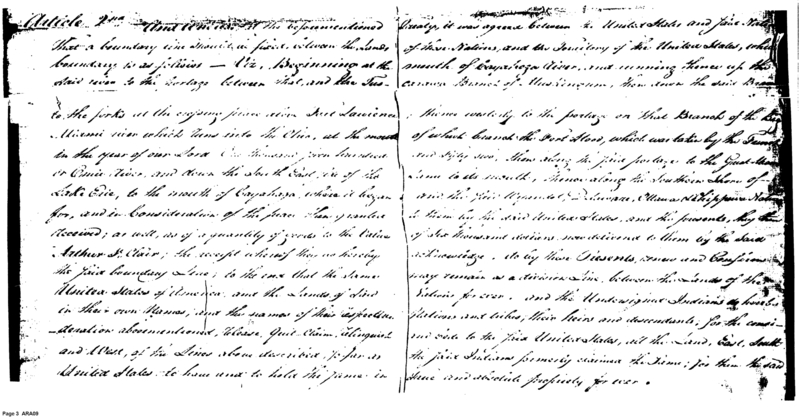 Article 2nd And whereas at the beforementioned Treaty, it was agreed between the United States and said Nations
That a boundary line should be fixed between the Lands of those Nations, and the Territory of the United States, which
boundary is as follows — Viz, Beginning at the mouth of Cayahoga River, and running thence up the
said river to the Portage between that, and the Tus- Branch of Muskingum, then down the said Branch
to the forks at the crossing place above Fort Lawrence thence westerly to the portage on that Branch of the
Miami river which runs into the Ohio, at the mouth of which branch the Fort Stood, which was taken by the French
in the year of our Lord One thousand seven hundred and Fifty two, then along the said portage to the Great Miami
or Omie River, and down the South East side of the Same to its mouth, Thence along the Southern Shore of
Lake Erie, to the mouth of Cayahoga, where it began and the said Wyandot, Delaware, Ottawa & Chippewa Nations
for, and in Consideration of the peace then granted to them by the said United States, and the presents, they then
received; as well, as of a quantity of goods to the Value of Six thousand dollars now delivered to them by the Said
Arthur St. Clair; the receipt whereof they do hereby acknowledge. do by these Presents, renew and Confirm
the said boundary Line; to the end that the same may remain as a division Line, between the Lands of the
United States of America, and the Lands of Said Nations for ever. and the Undersigned Indians do hereby
in their own Names, and the names of their respective Nations and tribes, their heirs and descendants, for the consi-
deration abovementioned, Release, Quit Claim, relinquish and cede to the said United States, all the Land, East, South
and West, of the Lines above described, so far as the said Indians formerly claimed the Same; for them the said
United States to have and to hold the same in true and absolute propriety for ever.
Page 3 ARA09